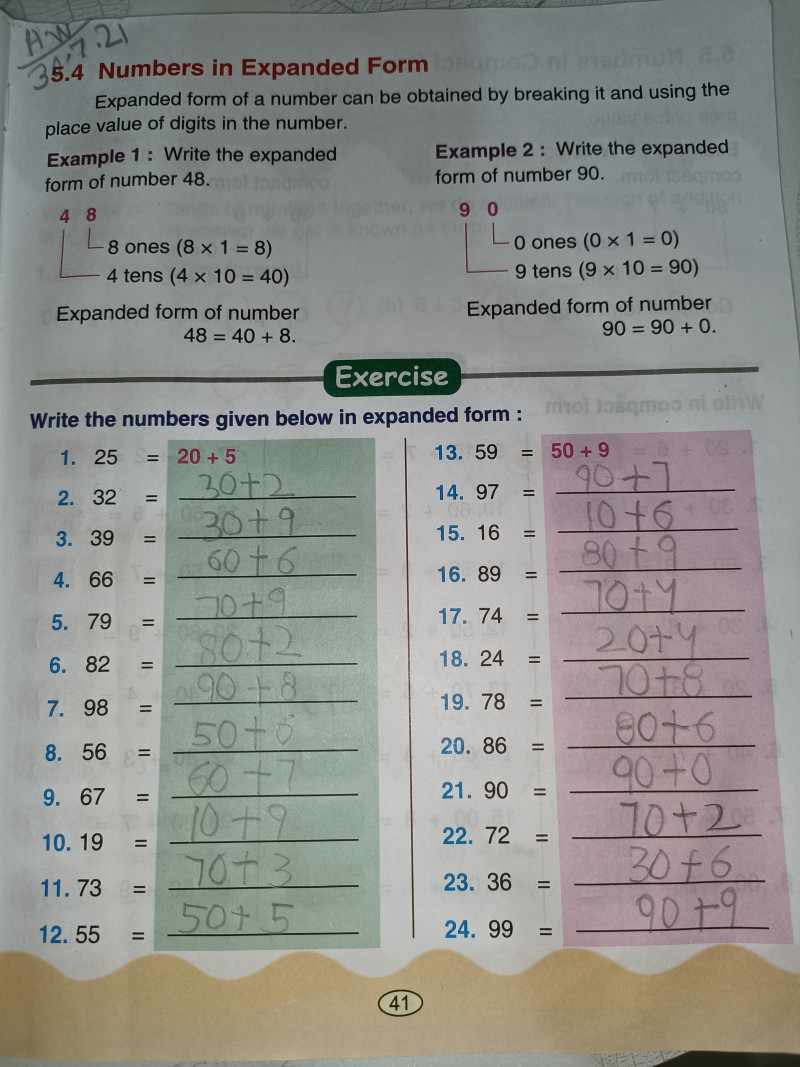 HW
30.7.21
5.4 Numbers in Expanded Form
Expanded form of a number can be obtained by breaking it and using the
place value of digits in the number.
Example 1 : Write the expanded
form of number 48.
4 8
8 ones (8 × 1 = 8)
4 tens (4 × 10 = 40)
Expanded form of number
48 = 40 + 8.
Example 2 : Write the expanded
form of number 90.
9 0
0 ones (0 × 1 = 0)
9 tens (9 × 10 = 90)
Expanded form of number
90 = 90 + 0.
Exercise
Write the numbers given below in expanded form :
1. 25 = 20 + 5
2. 32 = 30+2
3. 39 = 30+9
4. 66 = 60+6
5. 79 = 70+9
6. 82 = 80+2
7. 98 = 90+8
8. 56 = 50+6
9. 67 = 60+7
10. 19 = 10+9
11. 73 = 70+3
12. 55 = 50+5
13. 59 = 50 + 9
14. 97 = 90+7
15. 16 = 10+6
16. 89 = 80+9
17. 74 = 70+4
18. 24 = 20+4
19. 78 = 70+8
20. 86 = 80+6
21. 90 = 90+0
22. 72 = 70+2
23. 36 = 30+6
24. 99 = 90+9
41